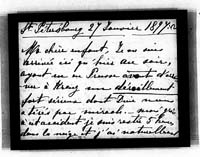 St Petersbourg 27 Janvier 1897
Ma chère enfant, Je ne suis
arrivée ici qu'hier au soir,
ayant eu en Russie avant d'arri
ver à un déraillement
fort sérieux dont Dieu nous
a tirés par miracle.
cet accident je suis restée 5 heures
dans la neige et j'ai naturellement